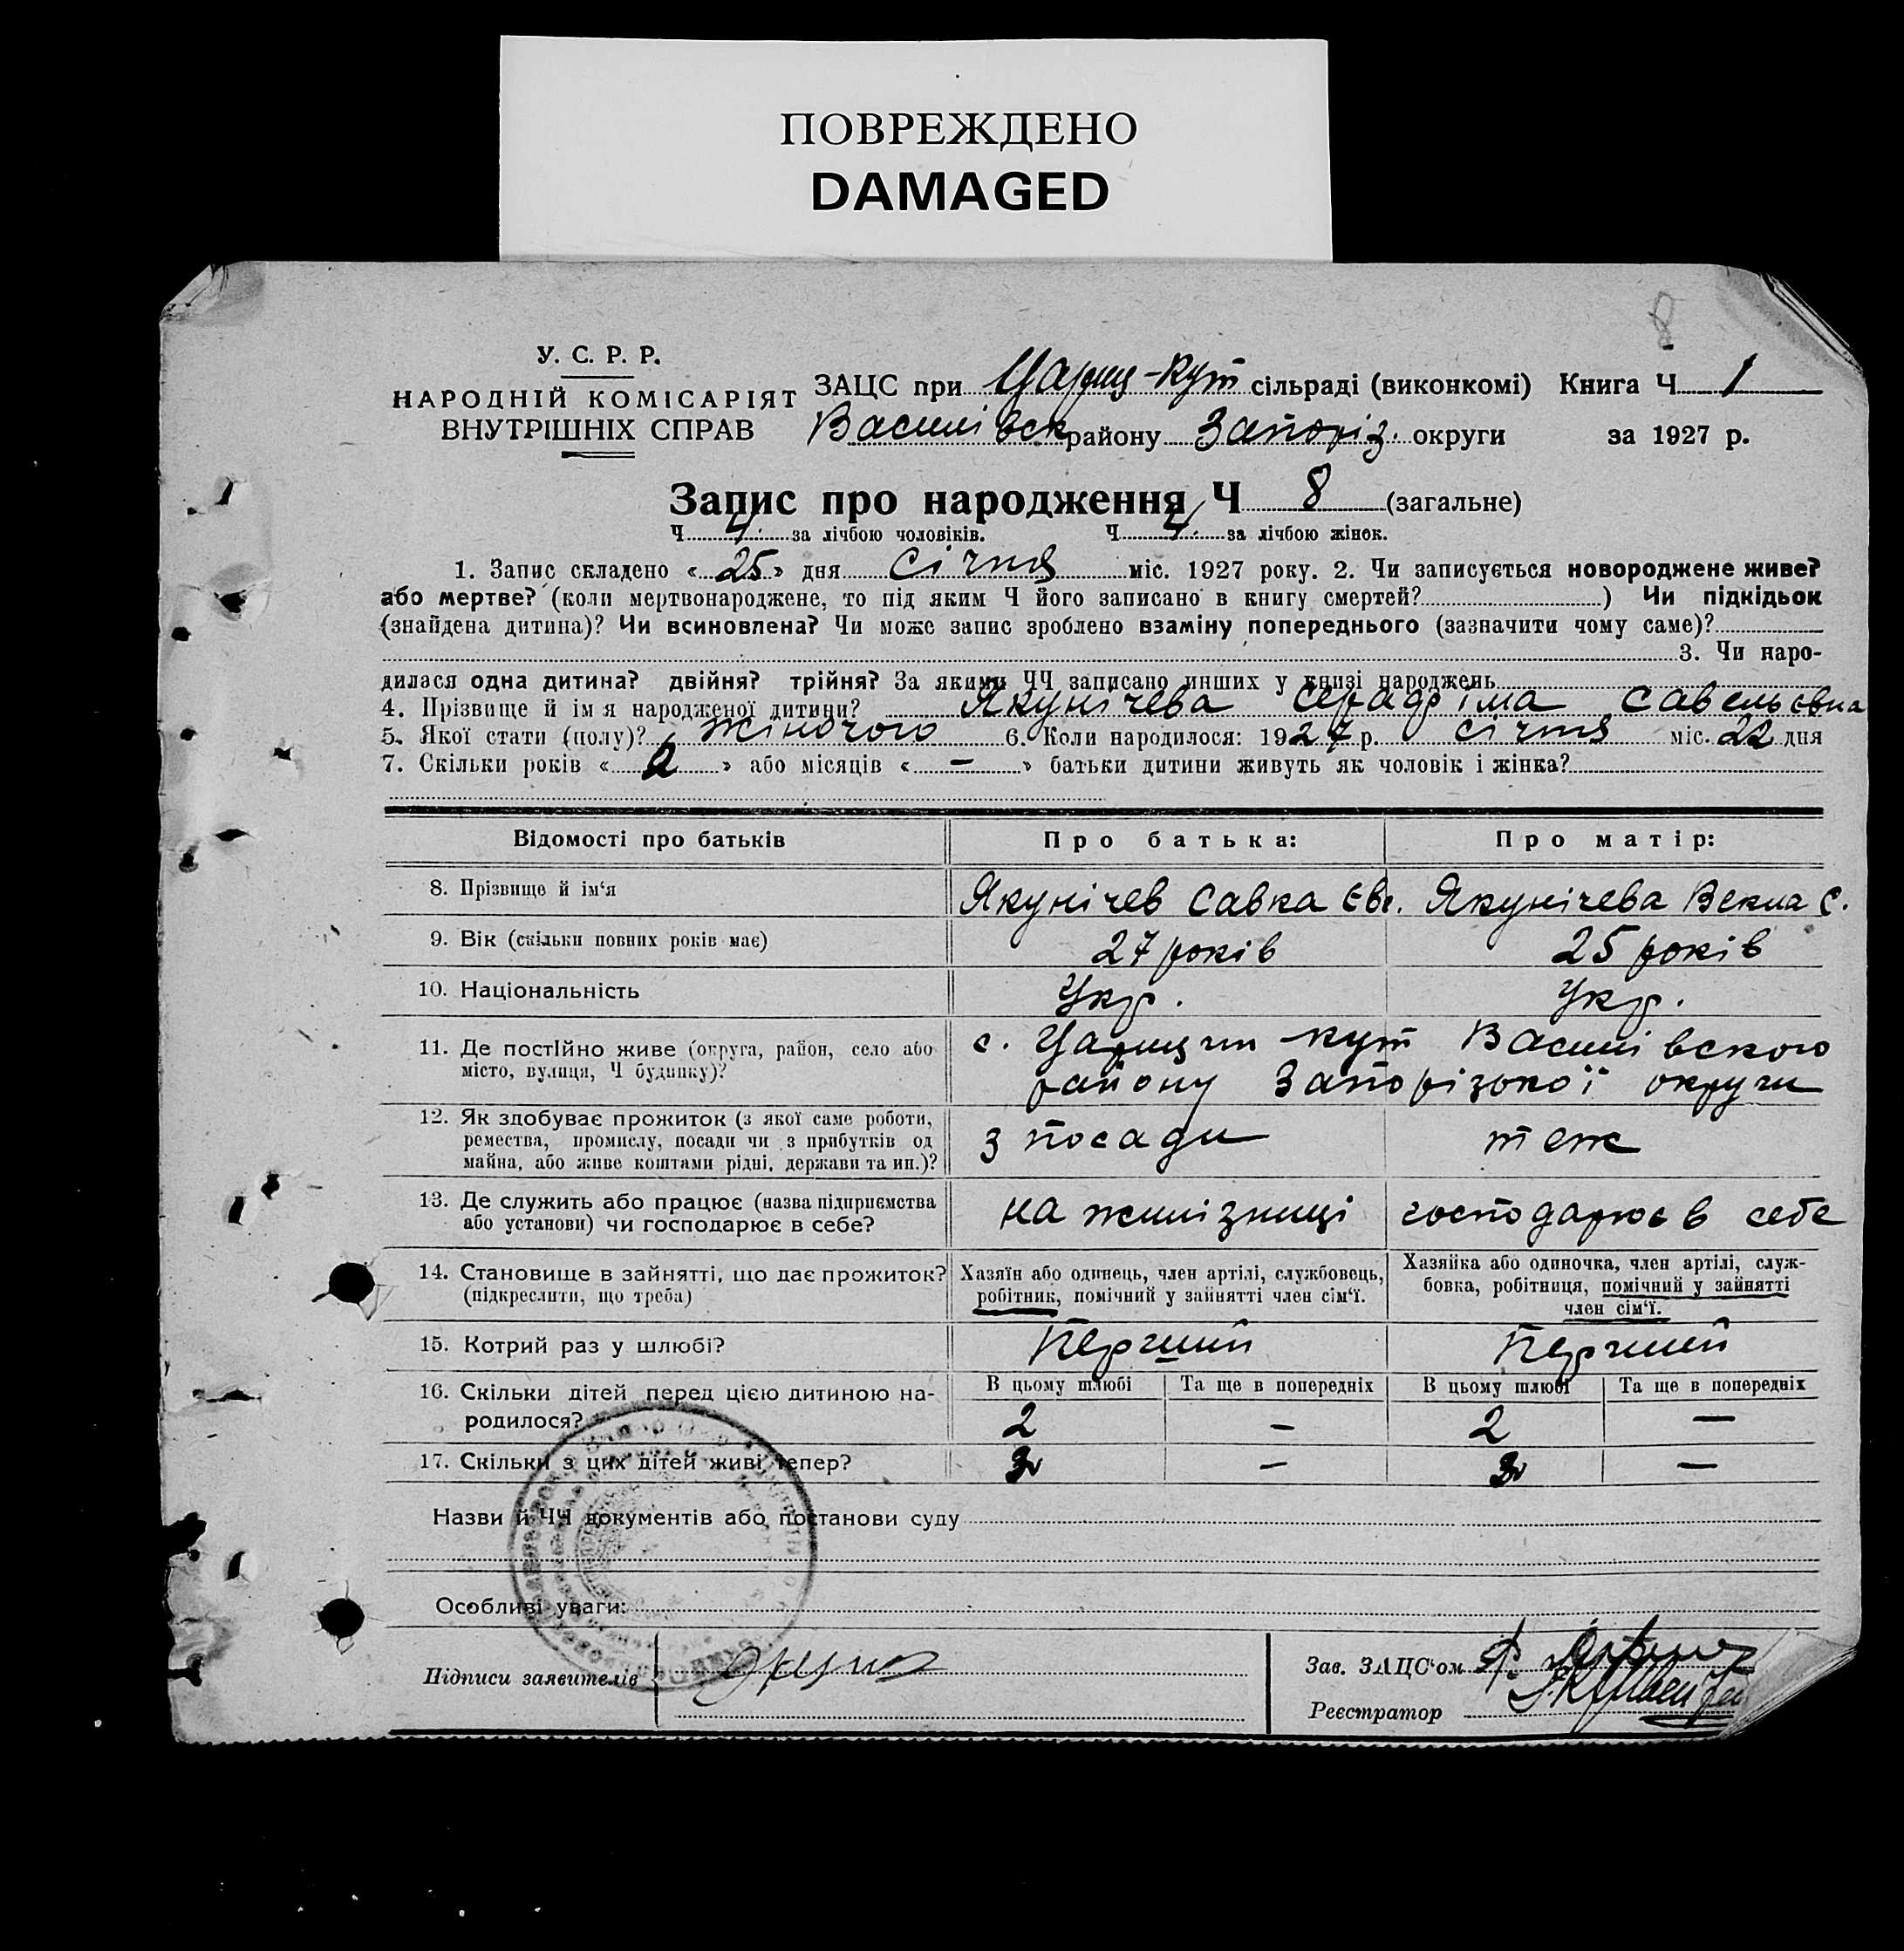 ПОВРЕЖДЕНО
DAMAGED
8
У. С. Р. Р.
НАРОДНІЙ КОМІСАРІЯТ
ВНУТРІШНІХ СПРАВ
ЗАЦС при Цариц-Кут сільраді (виконкомі) Книга Ч 1
Василівск району Запоріз. округи за 1927 р.
Запис про народження Ч 8 (загальне)
Ч 4. за лічбою чоловіків. Ч 4. за лічбою жінок.
1. Запис складено « 25 » дня Січня міс. 1927 року. 2. Чи записується новороджене живе?
або мертве? (коли мертвонароджене, то під яким Ч його записано в книгу смертей? ) Чи підкідьок
(знайдена дитина)? Чи всиновлена? Чи може запис зроблено взаміну попереднього (зазначити чому саме)?
3. Чи наро-
дилася одна дитина? двійня? трійня? За якими ЧЧ записано инших у книзі народжень
4. Прізвище й ім я народженої дитини? Якунічева Серафіма Савельєвна
5. Якої стати (полу)? Жіночого 6. Коли народилося: 1927 р. січня міс. 22 дня
7. Скільки років « 2 » або місяців « — » батьки дитини живуть як чоловік і жінка?
Відомості про батьків Про батька: Про матір:
8. Прізвище й ім'я Якунічев Савка Єве. Якунічева Векла С.
9. Вік (скільки повних років має) 27 років 25 років
10. Національність Укр. Укр.
11. Де постІйно живе (округа, район, село або
місто, вулиця, Ч будинку)?
с. Царицин-кут Василівского
району Запорізокої округи
12. Як здобуває прожиток (з якої саме роботи,
ремества, промислу, посади чи з прибутків од
майна, або живе коштами рідні, держави та ин.)?
з посади теж
13. Де служить або працює (назва підприємства
або установи) чи господарює в себе?
на жилізниці господарює в себе
14. Становище в зайнятті, що дає прожиток?
(підкреслити, що треба)
Хазяїн або одинець, член артілі, службовець,
робітник, помічний у зайнятті член сім'ї.
Хазяйка або одиночка, член артілі, служ-
бовка, робітниця, помічний у зайнятті
член сім'ї.
15. Котрий раз у шлюбі? Перший Перший
16. Скільки дітей перед цією дитиною на-
родилося?
В цьому шлюбі Та ще в попередніх В цьому шлюбі Та ще в попередніх
2 — 2 —
17. Скільки з цих дітей живі тепер? — —
Назви й ЧЧ документів або постанови суду
Особливі уваги:
Підписи заявителів
Зав. ЗАЦС'ом
Реєстратор